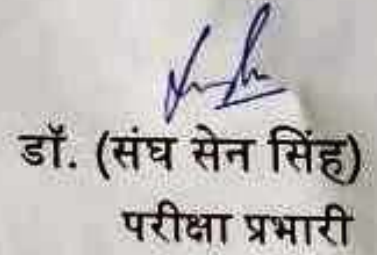 डॉ. (संघ सेन सिंह)
परीक्षा प्रभारी